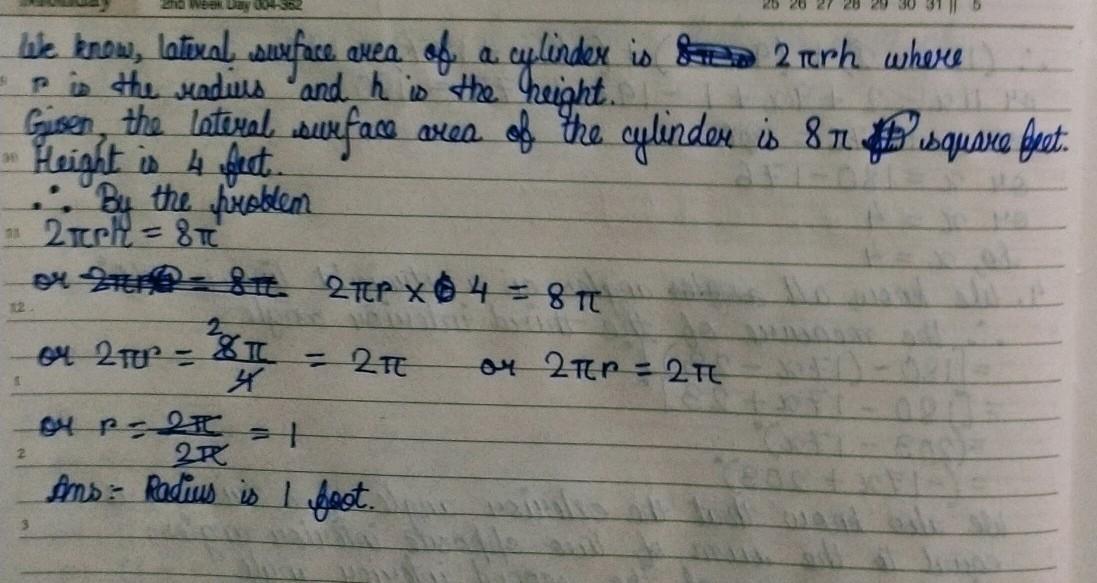 2nd Week Day 004-362
25 26 27 28 29 30 31 || 5
We know, lateral surface area of a cylinder is 2πrh where
r is the radius and h is the height.
Given, the lateral surface area of the cylinder is 8π square feet.
Height is 4 feet.
∴ By the problem
2πrh = 8π
or 2πr × 4 = 8π
or 2πr = 8π/4 2 = 2π or 2πr = 2π
or r = 2π/2π = 1
Ans:- Radius is 1 foot.